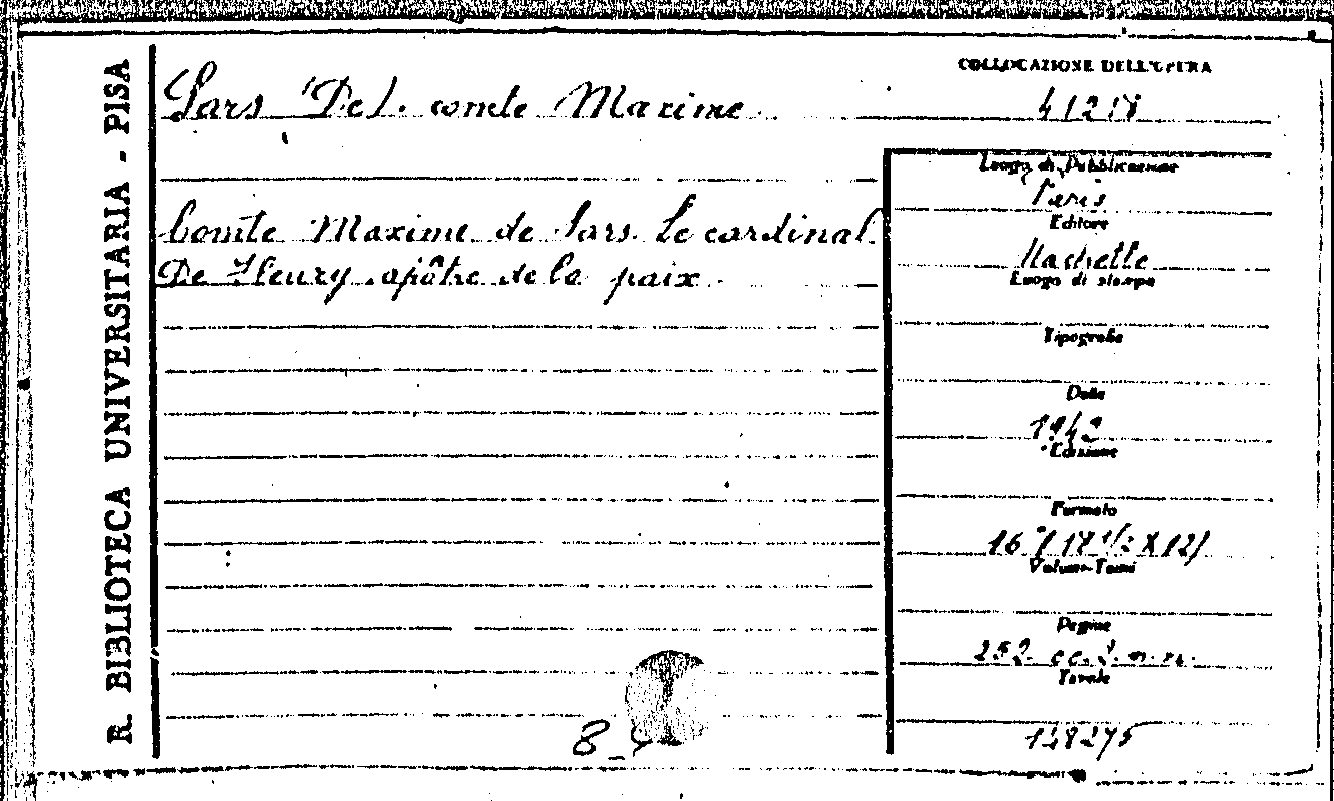 R. BIBLIOTECA UNIVERSITARIA - PISA
Sars (De). comte Maxime
Comte Maxime de Sars. Le cardinal
De Fleury apôtre de la paix
COLLOCAZIONE DELL'OPERA
Luogo di Pubblicazione
Paris
Editore
Hachette
Luogo di stampa
Tipografia
Data
1942
Edizione
Formato
16° (17 1/2 X 12)
Volumi-Tomi
Pagine
252. cc. 2. n. n.
Tavole
148275